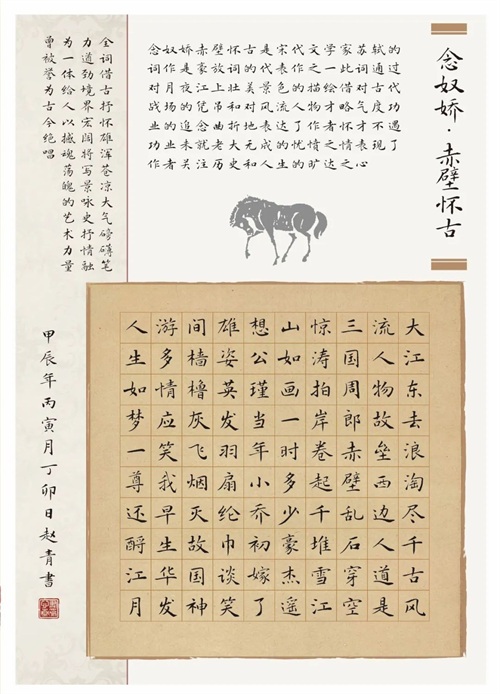 念奴娇·赤壁怀古
念奴娇赤壁怀古是宋代文学家苏轼的
词作是豪放词的代表作之一此词通过
对月夜江上壮美景色的描绘借对古代
战场的凭吊和对风流人物才略气度功
业的追念曲折地表达了作者怀才不遇
功业未就老大无成的忧情之情表现了
作者关注历史和人生的旷达之心
全词借古抒怀雄浑苍凉大气磅礴笔
力遒劲境界宏阔将写景咏史抒情融
为一体给人以撼魂荡魄的艺术力量
曾被誉为古今绝唱
大江东去浪淘尽千古风
流人物故垒西边人道是
三国周郎赤壁乱石穿空
惊涛拍岸卷起千堆雪江
山如画一时多少豪杰遥
想公瑾当年小乔初嫁了
雄姿英发羽扇纶巾谈笑
间樯橹灰飞烟灭故国神
游多情应笑我早生华发
人生如梦一尊还酹江月
甲辰年丙寅月丁卯日赵青书